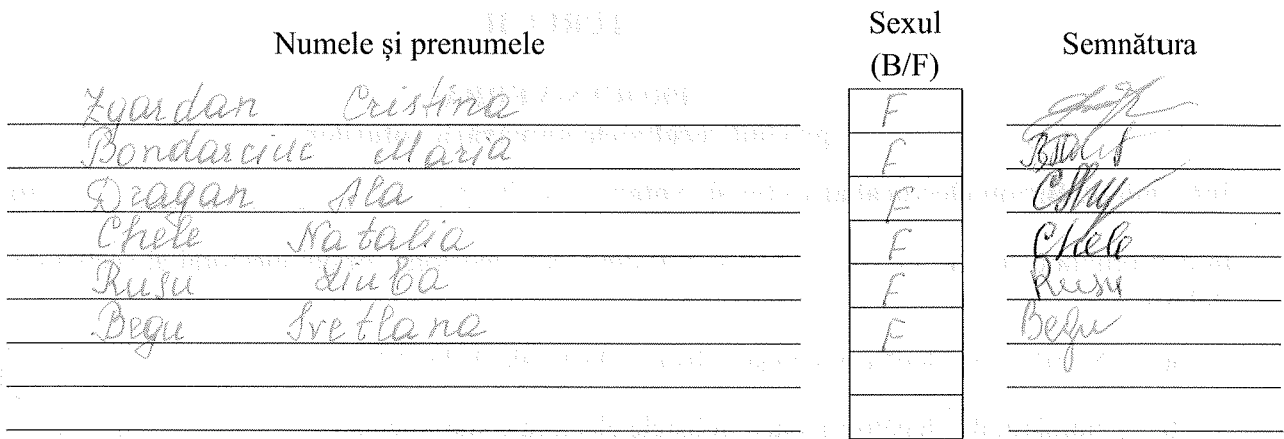 Numele și prenumele Sexul (B/F) Semnătura
Zgardan Cristina F
Bondarciuc Maria F
Dragan Ala F
Chele Natalia F Chele
Rusu Liuba F Rusu
Begu Svetlana F Begu